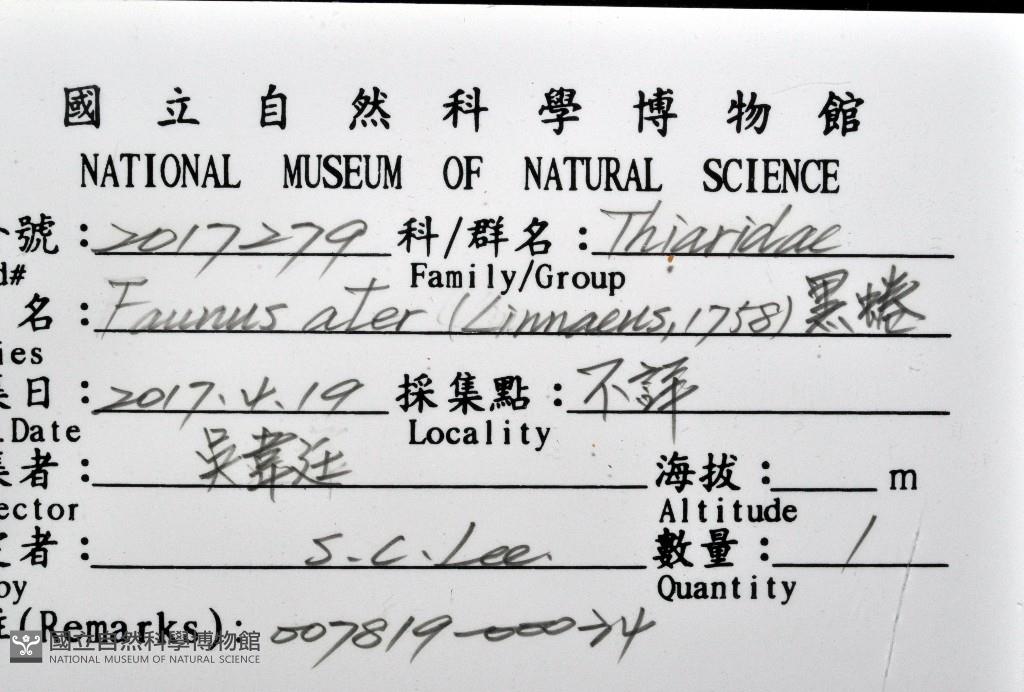 國立自然科學博物館
NATIONAL MUSEUM OF NATURAL SCIENCE
號：2017279 科/群名：Thiaridae
d# Family/Group
名：Faunus ater (Linnaeus, 1758) 黑蜷
ies
集日：2017.4.19 採集點：不詳
.Date Locality
集者：吳韋廷 海拔：____m
ector Altitude
定者：S.C.Lee. 數量：1
by Quantity
註(Remarks): 007819-00034
國立自然科學博物館
NATIONAL MUSEUM OF NATURAL SCIENCE